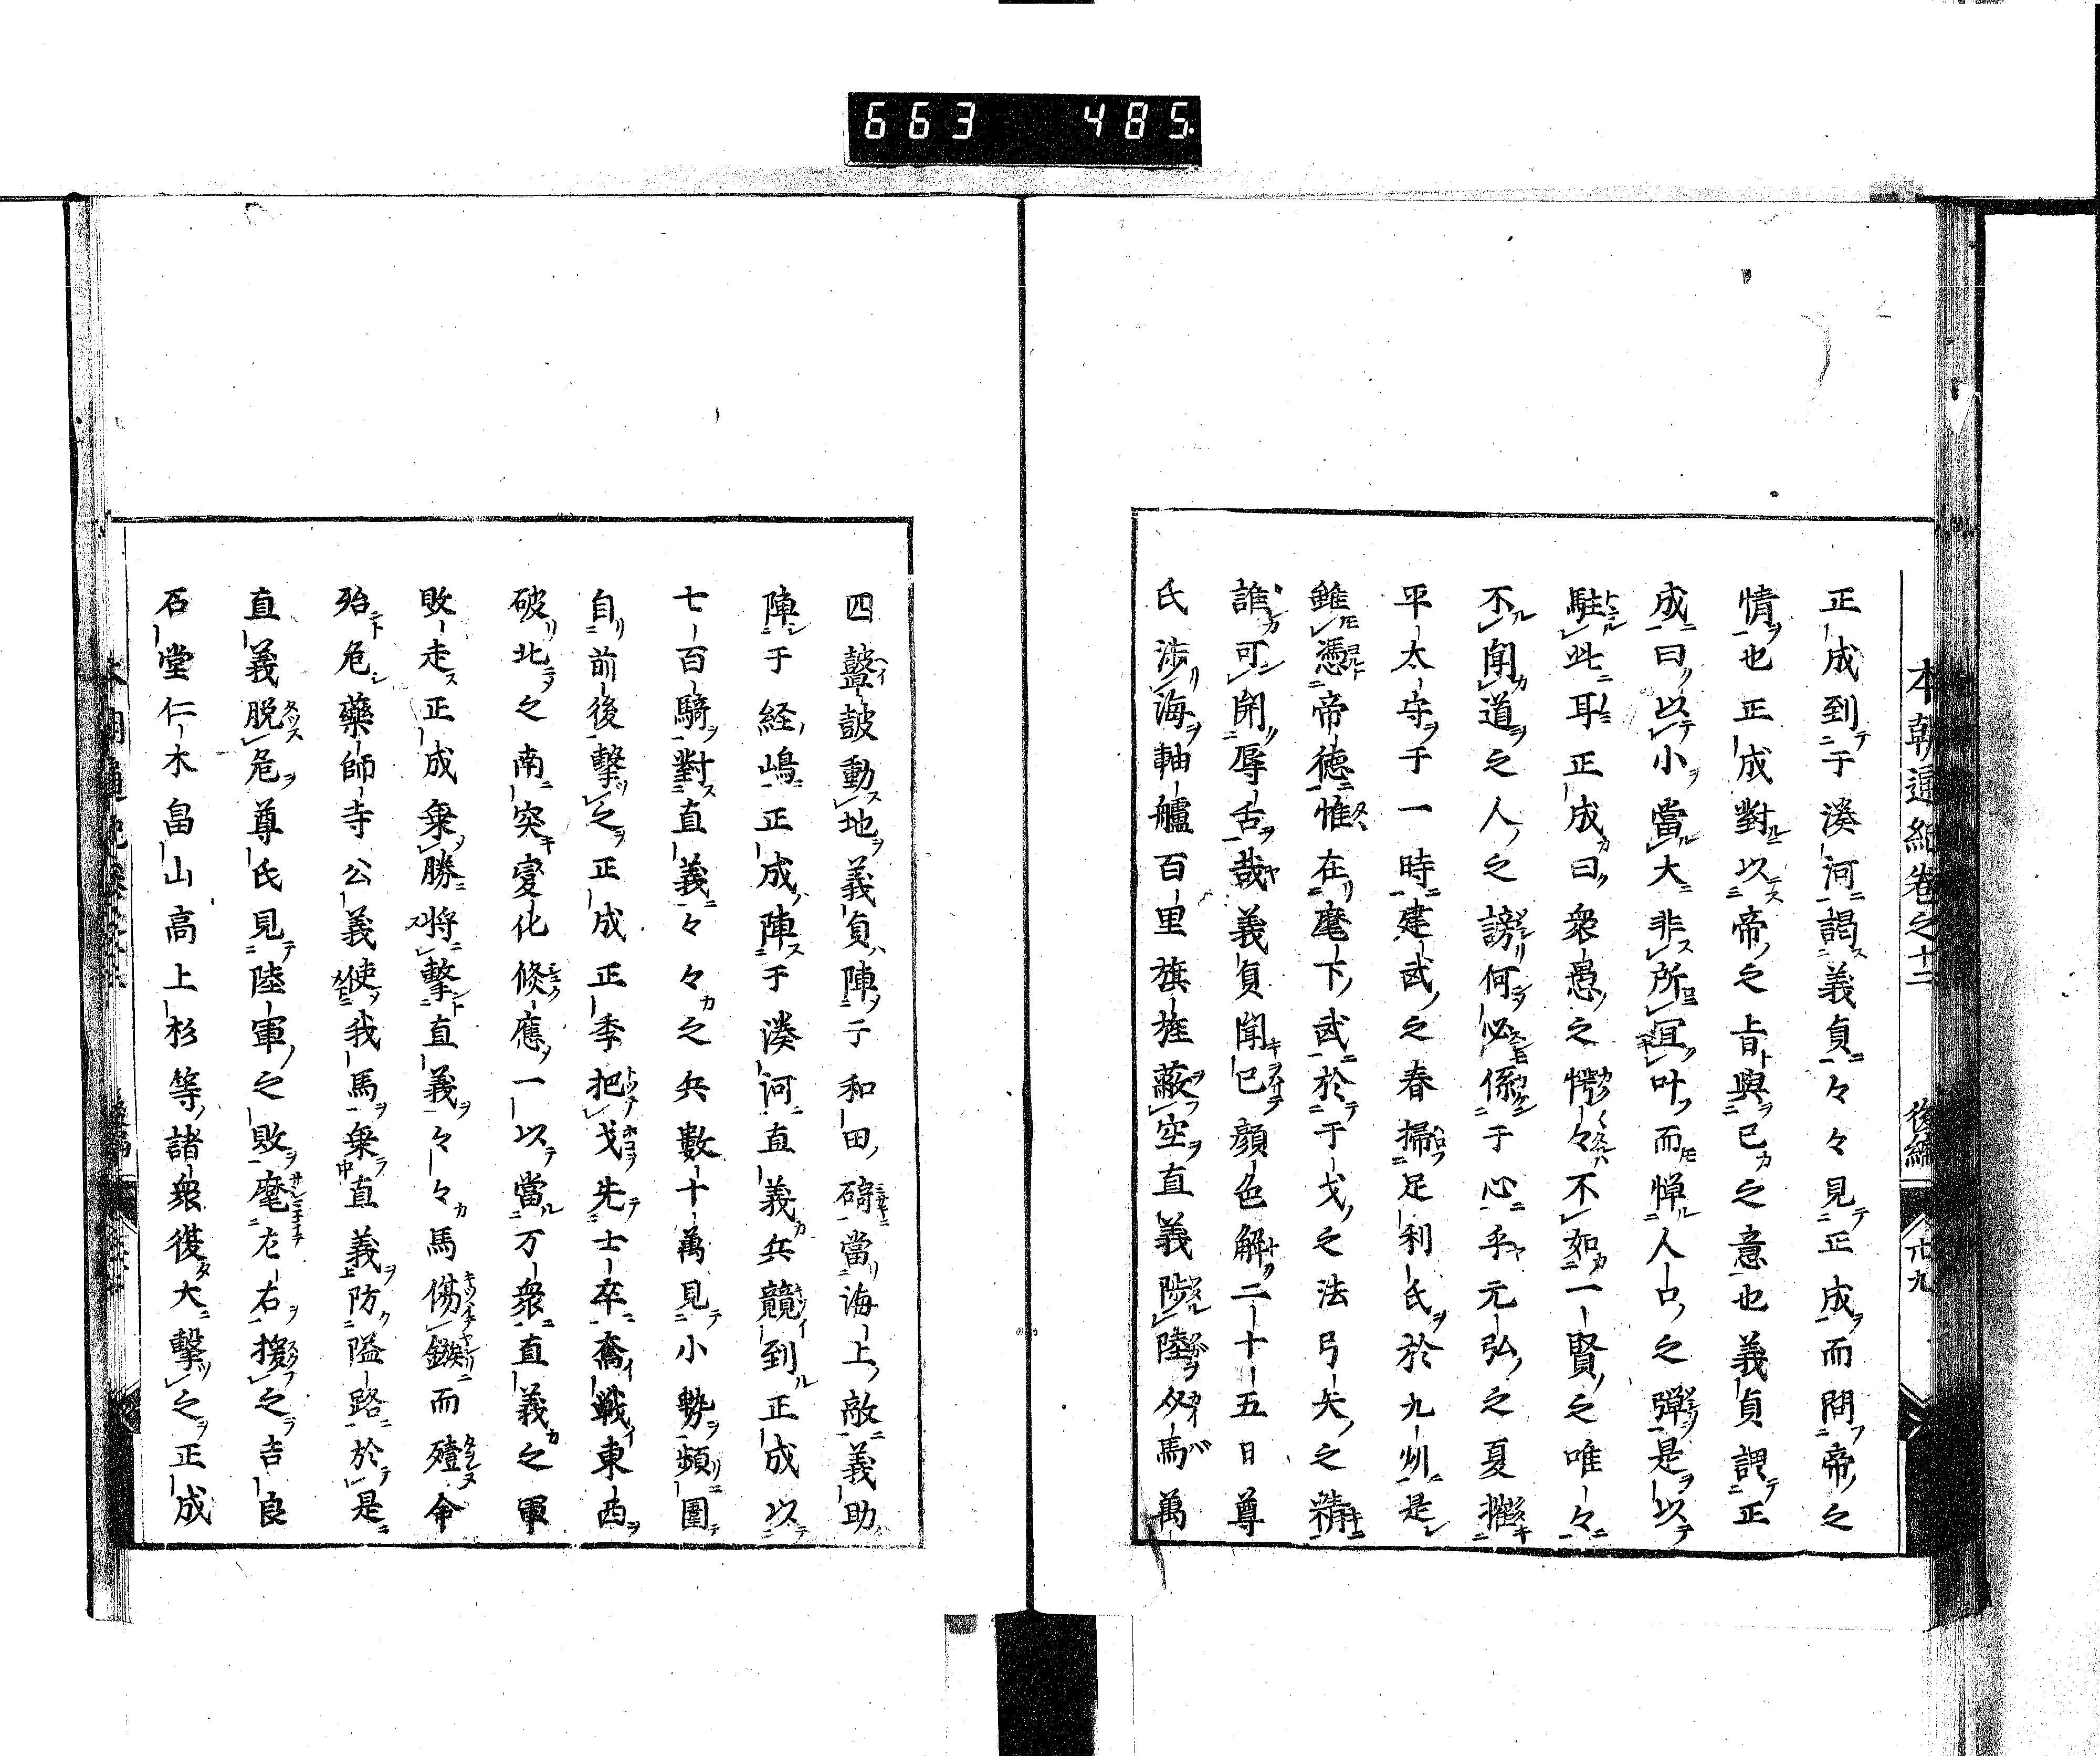 663 485
本朝通紀卷之十二 後編 廿九
正成到于湊河謁義貞々々見正成而問帝之
情也正成對以帝之旨與已之意也義貞謂正
成曰以小當大非所宜叶而惮人口之彈是以
駐此耳正成曰衆愚之愕々不如一賢之唯々
不聞道之人之謗何必係于心乎元弘之夏摧
平太守于一時建武之春掃足利氏於九州是
雖憑帝德惟在麾下武於干戈之法弓矢之精
誰可開辱舌哉義貞聞已顔色解二十五日尊
氏渉海軸艫百里旗旌蔽空直義陟陸夂馬萬
四鼙鼓動地義貞陣于和田碕當海上敵義助
陣于経嶋正成陣于湊河直義兵競到正成以
七百騎對直義々々之兵數十萬見小勢頻圍
自前後擊之正成正季把戈先士卒奮戰東西
破北之南突変化倏應一以當万衆直義之軍
敗走正成乗勝將擊直義々々馬傷鏃而殪命
殆危藥師寺公義使我馬乗直義防隘路於是
直義脱危尊氏見陸軍之敗麾左右援之吉良
石堂仁木畠山高上杉等諸衆復大擊之正成